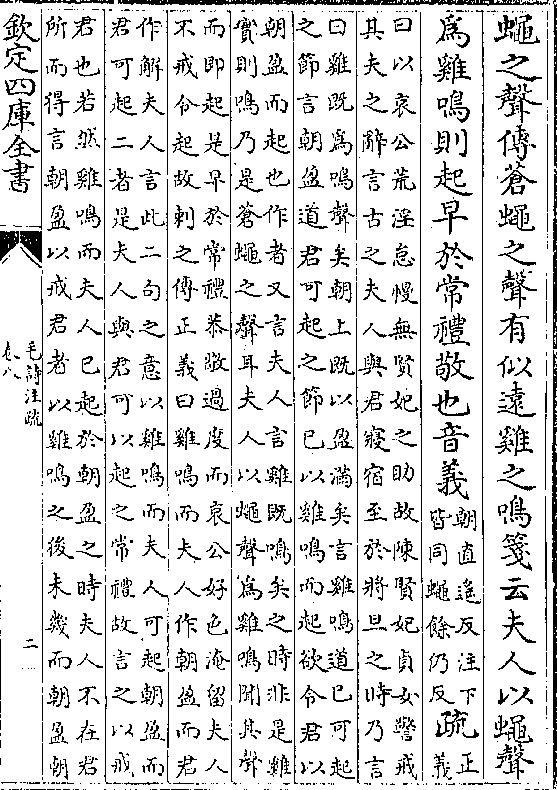 蠅之聲傳蒼蠅之聲有似遠雞之鳴箋云夫人以蠅聲
爲雞鳴則起早於常禮敬也音義朝直遙反注下皆同蠅餘仍反疏正義
曰以哀公荒淫怠慢無賢妃之助故陳賢妃貞女警戒
其夫之辭言古之夫人與君寢宿至於將旦之時乃言
曰雞既爲鳴聲矣朝上既以盈滿矣言雞鳴道已可起
之節言朝盈道君可起之節已以雞鳴而起欲令君以
朝盈而起也作者又言夫人言雞既鳴矣之時非是雞
實則鳴乃是蒼蠅之聲耳夫人以蠅聲爲雞鳴聞其聲
而即起是早於常禮恭敬過度而哀公好色淹留夫人
不戒令起故刺之傳正義曰雞鳴而夫人作朝盈而君
作解夫人言此二句之意以雞鳴而夫人可起朝盈而
君可起二者是夫人與君可以起之常禮故言之以戒
君也若然雞鳴而夫人已起於朝盈之時夫人不在君
所而得言朝盈以戒君者以雞鳴之後未幾而朝盈朝
欽定四庫全書
毛詩注疏
卷八
二